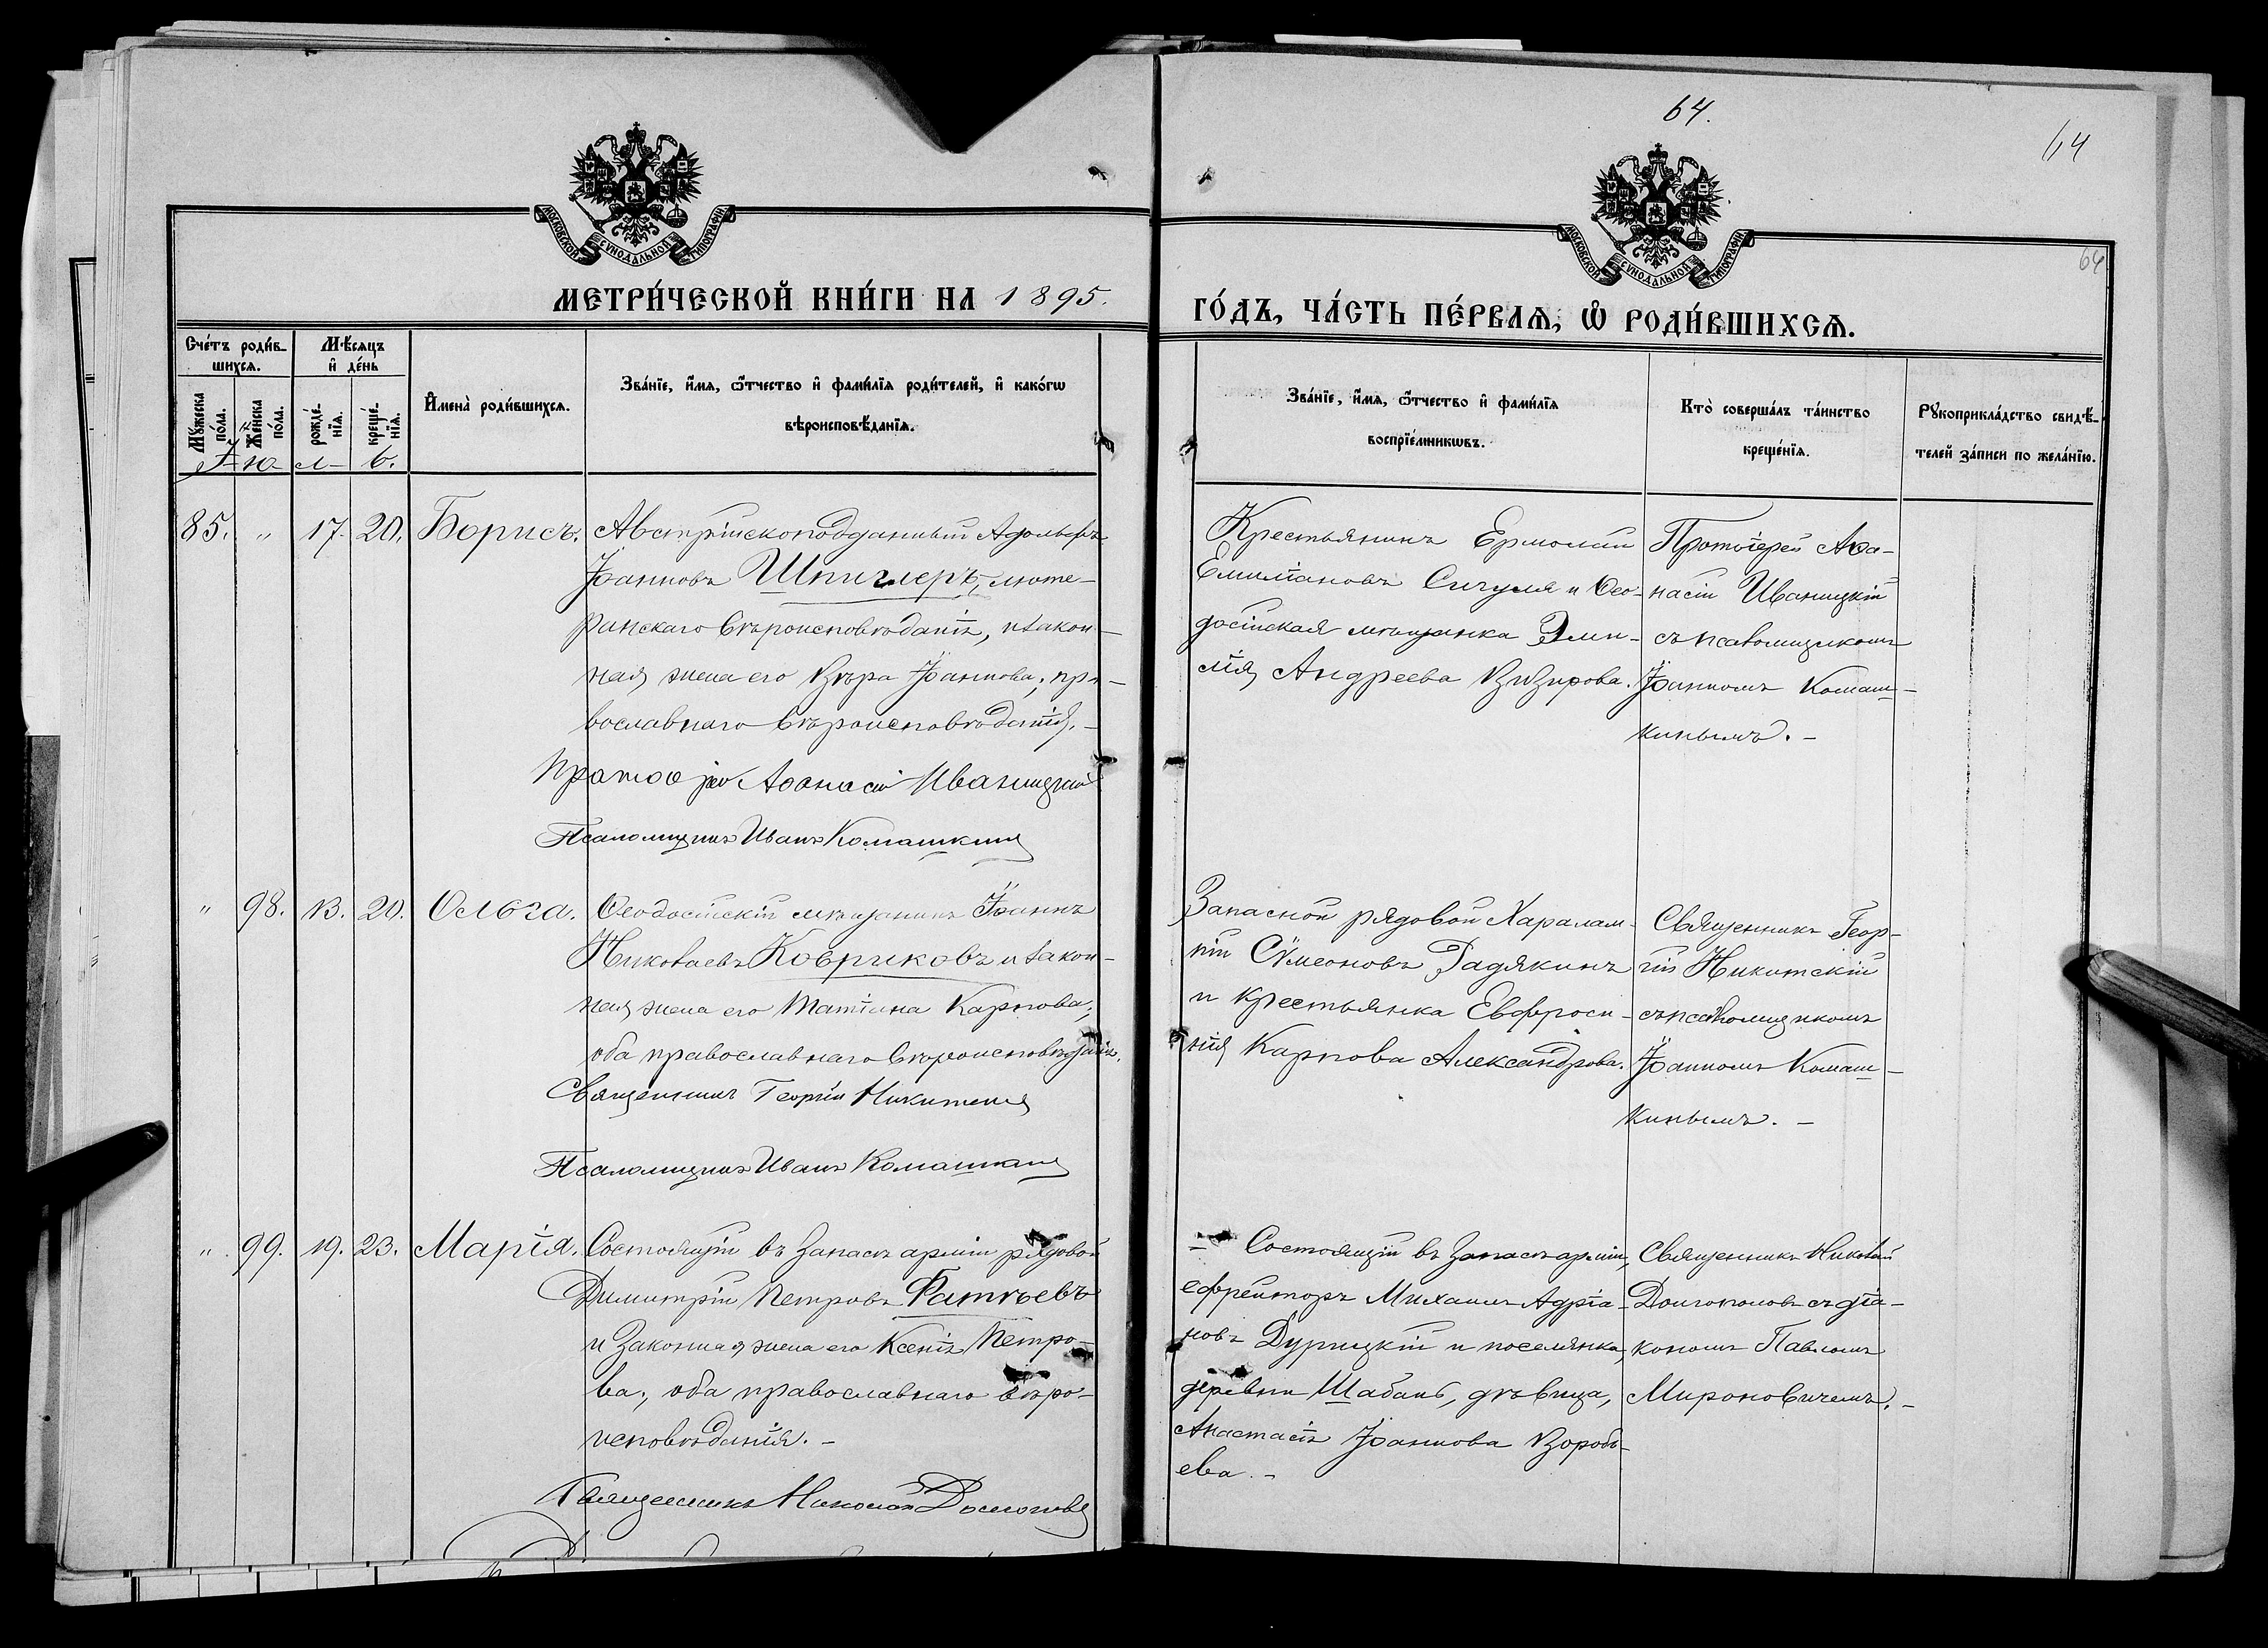 64.
64
64
МОСКОВСКОЙ СѴНОДАЛЬНОЙ ТИПОГРАФІИ
МОСКОВСКОЙ СѴНОДАЛЬНОЙ ТИПОГРАФІИ
МЕТРИ́ЧЕСКОЙ КНИ́ГИ НА 1895.
ГО́ДЪ, ЧА́СТЬ ПЕ́РВАѦ, Ѡ҆ РОДИ́ВШИХСѦ.
Сче́тъ роди́в-
шихсѧ.
Мѣ́сѧцъ
и҆ де́нь
Мꙋ́жеска
по́ла.
Же́нска
по́ла.
рожде́-
нїѧ.
креще́-
нїѧ.
И҆мена̀ роди́вшихсѧ.
Зва́нїе, и҆́мѧ, ѻ҆́тчество и҆ фами́лїѧ роди́телей, и҆ како́гѡ
вѣроисповѣ́данїѧ.
Зва́нїе, и҆́мѧ, ѻ҆́тчество и҆ фами́лїѧ
воспрїе́мникѡвъ.
Кто̀ соверша́лъ та́инство
креще́нїѧ.
Рꙋкоприкла́дство свидѣ́-
телей за́писи по жела́нїю.
І-ю-л-ь.
85. „ 17. 20. Борисъ.
Австрійскоподданный Адольфъ
Іоанновъ Шпиглеръ, люте-
ранскаго вѣроисповѣданія, и закон-
ная жена его Вѣра Іоаннова, пра-
вославнаго вѣроисповѣданія.-
Протоіерей Аѳанасій Иваницкій
Псаломщикъ Иванъ Комашкинъ
Крестьянинъ Ермолай
Емиліановъ Сигуля и Ѳео-
досійская мѣщанка Эми-
лія Андреева Визирова.
Протоіерей Аѳа-
насій Иваницкій
съ псаломщикомъ
Іоанномъ Комаш-
кинымъ.-
„ 98. 13. 20. Ольга.
Ѳеодосійскій мѣщанинъ Іоаннъ
Николаевъ Ковриковъ и закон-
ная жена его Татіана Карпова;
оба православнаго вѣроисповѣданія.
Священникъ Георгій Никитскій
Псаломщикъ Иванъ Комашкинъ
Запасной рядовой Харалам-
пій Сѵмеоновъ Дадякинъ
и крестьянка Евфроси-
нія Карпова Александрова.
Священникъ Геор-
гій Никитскій
съ псаломщикомъ
Іоанномъ Комаш-
кинымъ.-
„ 99. 19. 23. Марія.
Состоящій въ запасѣ арміи рядовой
Димитрій Петровъ Фатѣевъ
и законная жена его Ксенія Петро-
ва; оба православнаго вѣро-
исповѣданія.-
Священникъ Николай Долгополовъ
- Состоящій въ запасѣ арміи,
ефрейторъ Михаилъ Адріа-
новъ Дурицкій и поселянка,
деревни Шабань, дѣвица,
Анастасія Іоаннова Воробь-
ева.-
Священникъ Николай
Долгополовъ съ діа-
кономъ Павломъ
Мироновичемъ.-